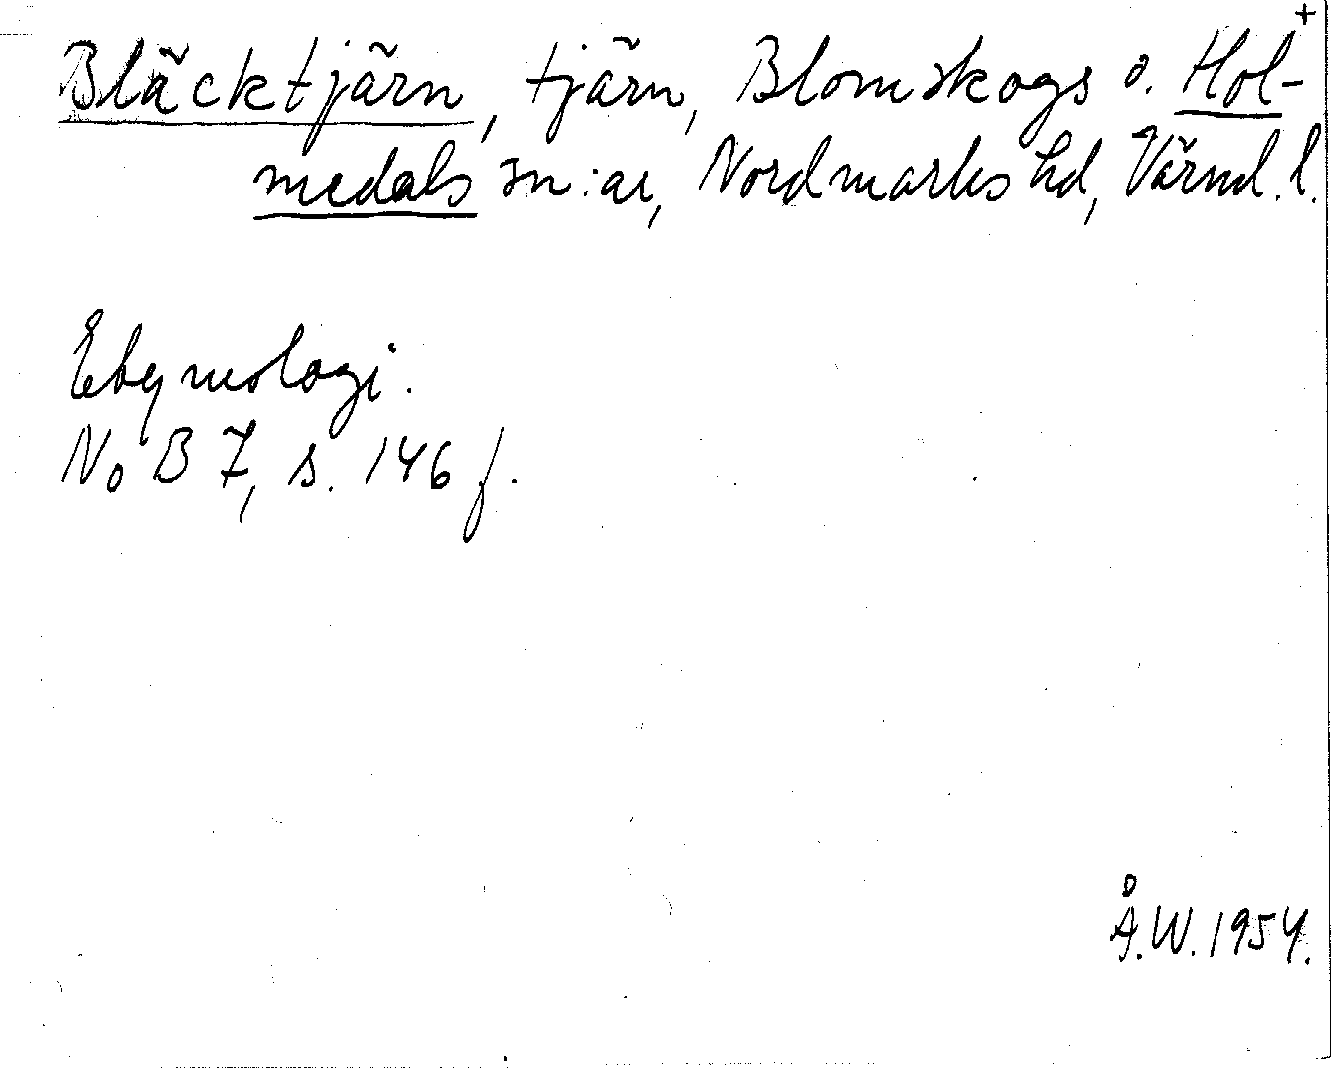 +
Bläcktjärn, tjärn, Blomskogs o. Hol-
medals sn:ar, Nordmarks hd, Värml. l.
Etymologi.
NoB 7, s. 146 f.
Å.W. 1954.